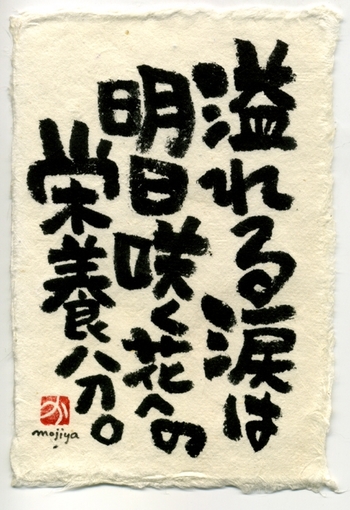 溢れる涙は
明日咲く花への
栄養分。
mojiya